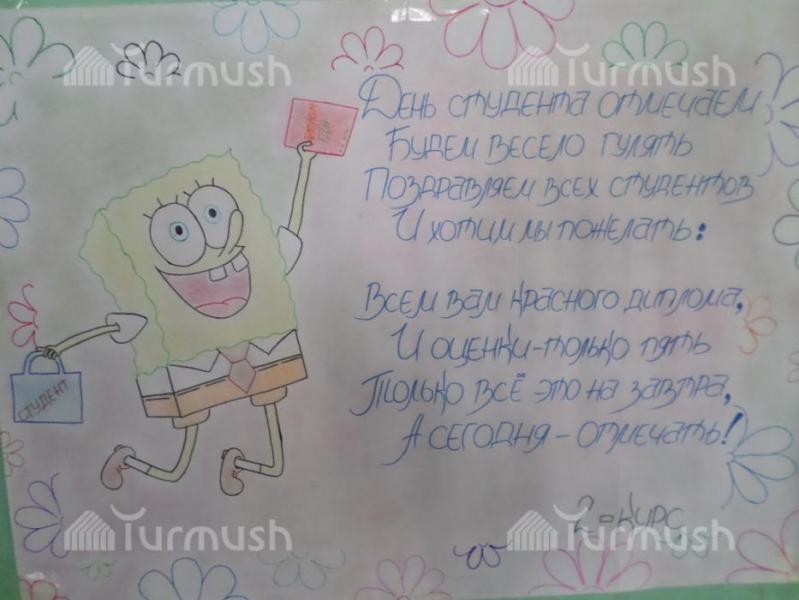 Turmush
Turmush
День студента отмечаем
Будем весело гулять
Поздравляем всех студентов
И хотим мы пожелать:
Всем вам красного диплома,
И оценки-только пять
Только всё это на завтра,
А сегодня – отмечать!
СТУДЕНТ
2-курс
Turmush
Turmush